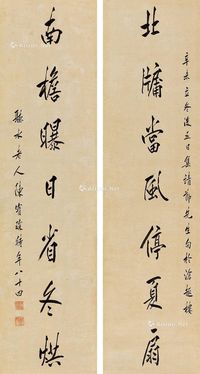 辛未立冬後五日集靖節先生句於滄趣樓
北牖當風停夏扇
南檐曝日省冬烘
聽水老人陳寶琛時年八十四